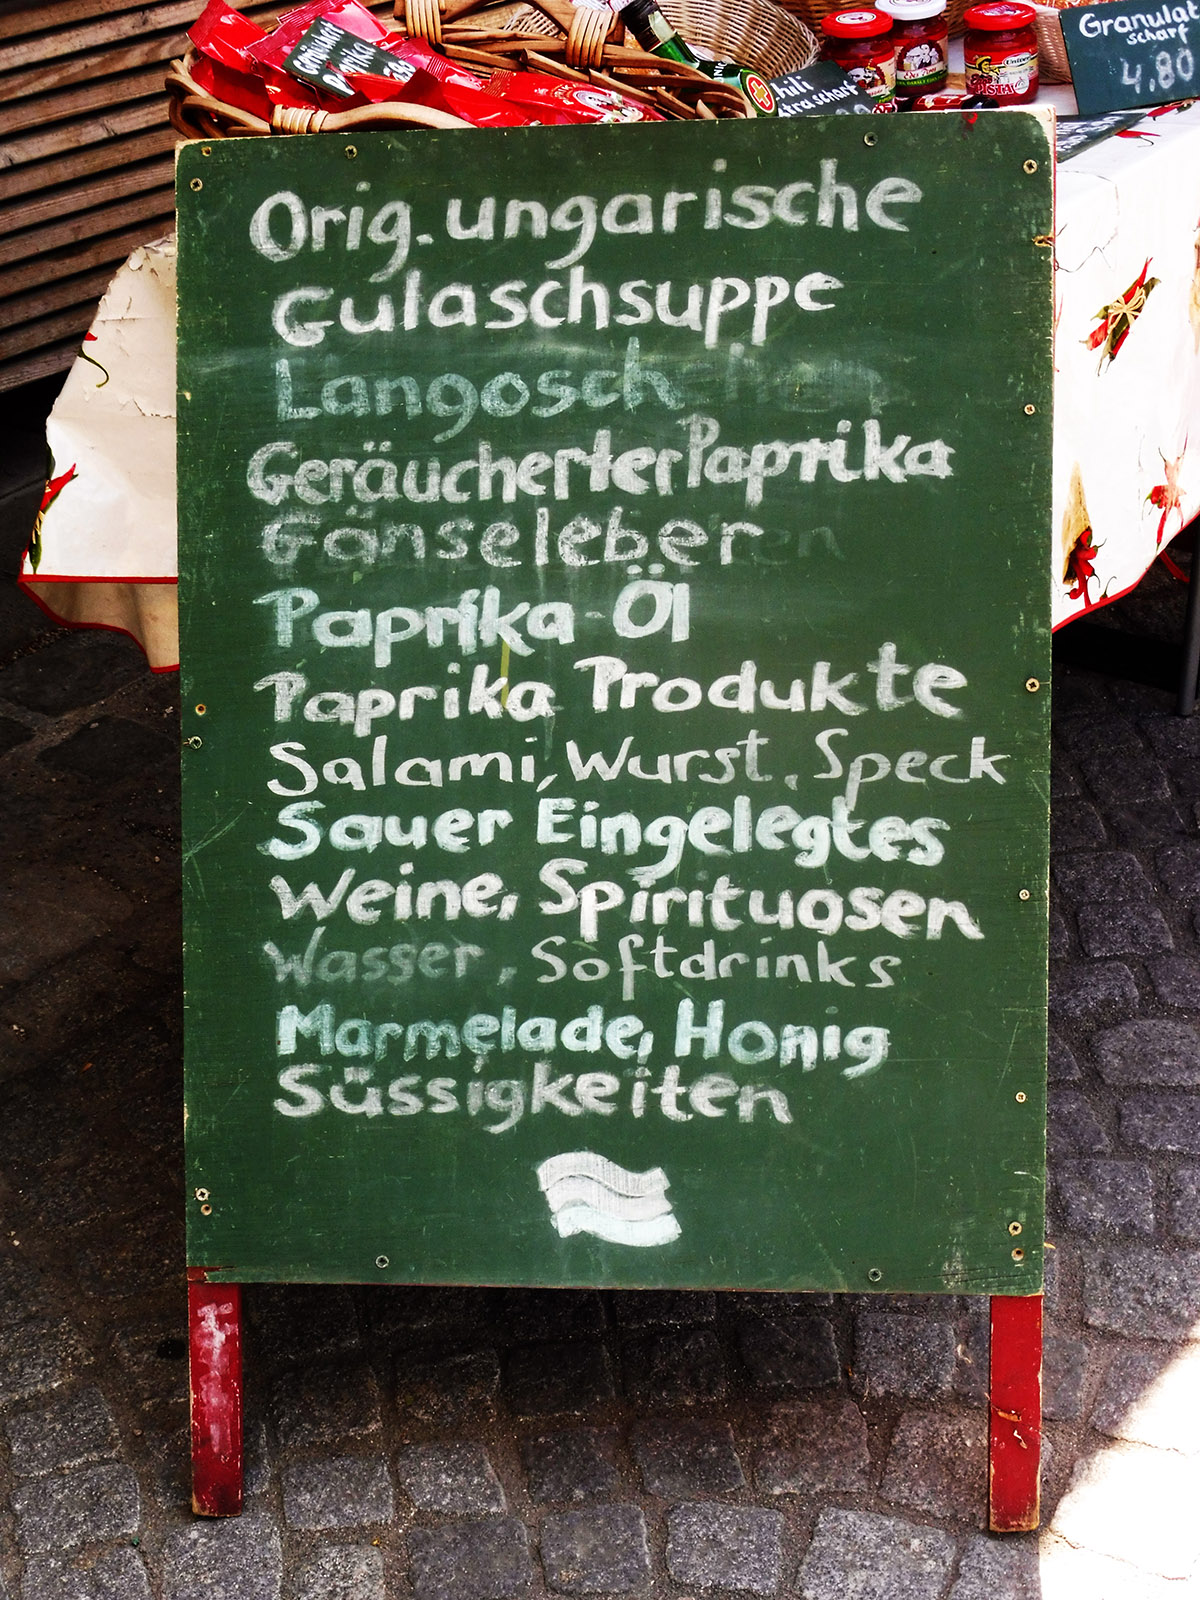 Granulat
scharf
4.80
PISTA
Orig. ungarische
Gulaschsuppe
Langosch
Geräucherter Paprika
Gänseleber
Paprika-Öl
Paprika Produkte
Salami, Wurst, Speck
Sauer Eingelegtes
Weine, Spirituosen
Wasser, Softdrinks
Marmelade, Honig
Süssigkeiten